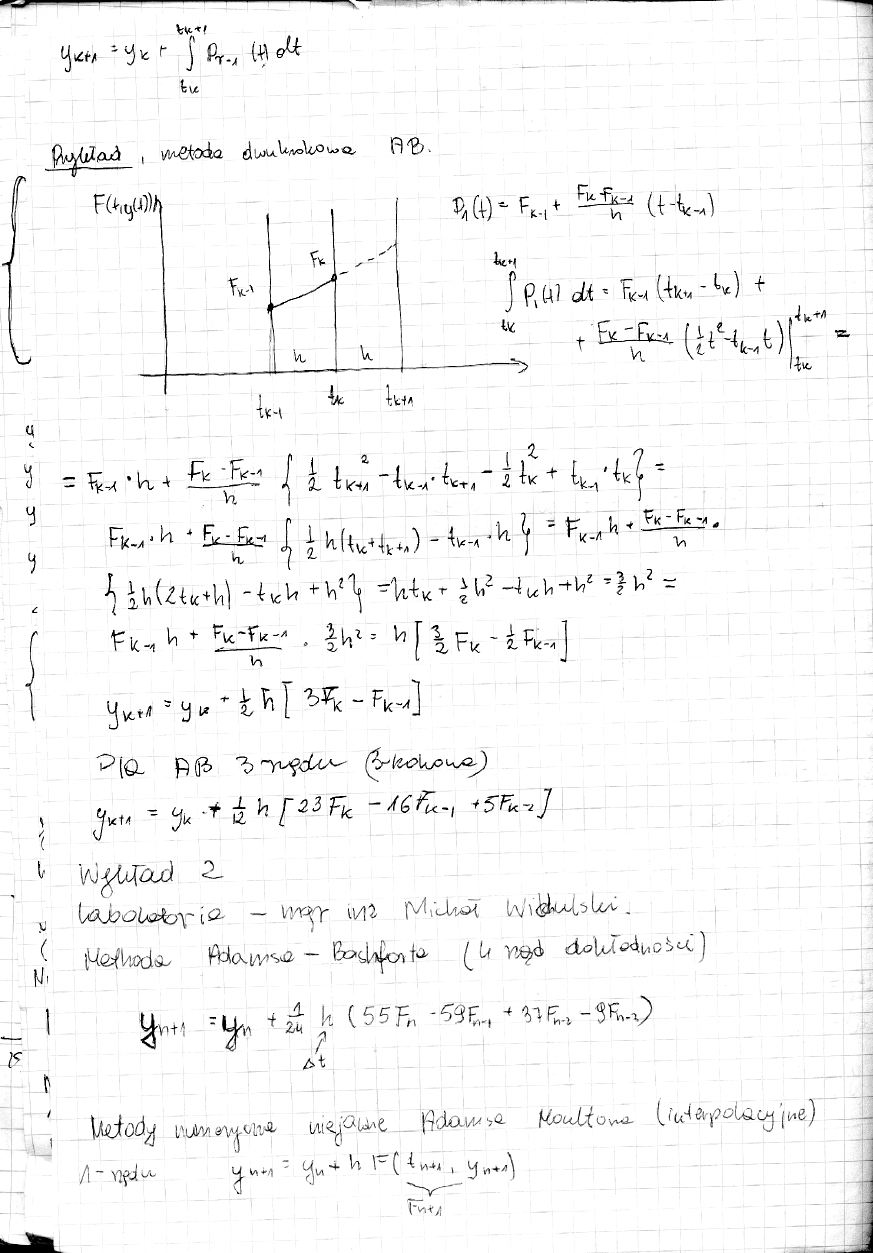 y_{k+1} = y_k + ∫_{t_k}^{t_{k+1}} P_{r-1}(t) dt
Przykład, metoda dwukrokowa AB.
F(t,y(t))
F_{k-1}
F_k
h h
t_{k-1} t_k t_{k+1}
P_1(t) = F_{k-1} + \frac{F_k - F_{k-1}}{h} (t - t_{k-1})
∫_{t_k}^{t_{k+1}} P_1(t) dt = F_{k-1} (t_{k+1} - t_k) +
+ \frac{F_k - F_{k-1}}{h} (\frac{1}{2} t^2 - t_{k-1} t) |_{t_k}^{t_{k+1}} =
= F_{k-1} · h + \frac{F_k - F_{k-1}}{h} { \frac{1}{2} t_{k+1}^2 - t_{k-1} · t_{k+1} - \frac{1}{2} t_k^2 + t_{k-1} · t_k } =
F_{k-1} · h + \frac{F_k - F_{k-1}}{h} { \frac{1}{2} h (t_k + t_{k+1}) - t_{k-1} · h } = F_{k-1} h + \frac{F_k - F_{k-1}}{h} ·
{ \frac{1}{2} h (2t_k + h) - t_k h + h^2 } = h t_k + \frac{1}{2} h^2 - t_k h + h^2 = \frac{3}{2} h^2 =
F_{k-1} h + \frac{F_k - F_{k-1}}{h} · \frac{3}{2} h^2 = h [ \frac{3}{2} F_k - \frac{1}{2} F_{k-1} ]
y_{k+1} = y_k + \frac{1}{2} h [ 3F_k - F_{k-1} ]
Dla AB 3 rzędu (3-kokowa)
y_{k+1} = y_k + \frac{1}{12} h [ 23 F_k - 16 F_{k-1} + 5F_{k-2} ]
Wykład 2
Laboratoria - mgr inż Michał
Methoda Adamsa - Bashforta (4 rząd dokładności)
y_{n+1} = y_n + \frac{1}{24} h (55 F_n - 59 F_{n-1} + 37 F_{n-2} - 9 F_{n-3})
Δt
Metody numeryczne niejawne Adamsa Moultona (interpolacyjne)
1-rzędu y_{n+1} = y_n + h F( t_{n+1}, y_{n+1})
F_{n+1}